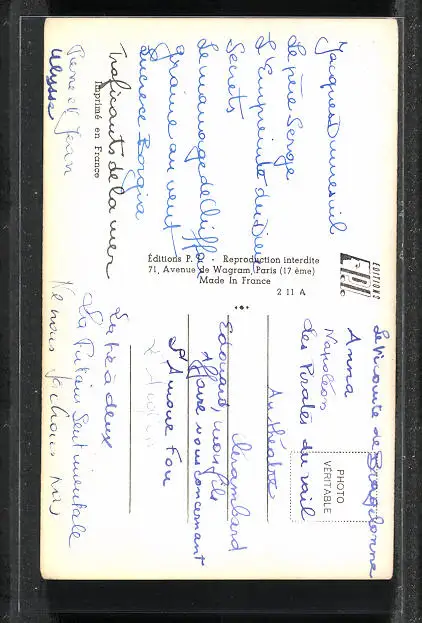 Jacques Dumesnil
Le père Serge
L'Empreinte du Dieu
Secrets
Le mariage de Chiffon
graine au vent
Lucrèce Borgia
Traficants de la mer
Imprimé en France
Pierre et Jean
Ulysse
EDITIONS
P.I.
Éditions P. I. - Reproduction interdite
71, Avenue de Wagram, Paris (17 ème)
Made In France
2 11 A
PHOTO
VÉRITABLE
Le Vicomte de Bragelonne
Anna
Napoléon
Les Pirates du rail
Au théatre
Clérambard
Edouard, mon fils
Affaire vous concernant
L'Amour Fou
La vie à deux
La Putain Sentimentale
Ne nous fachons pas